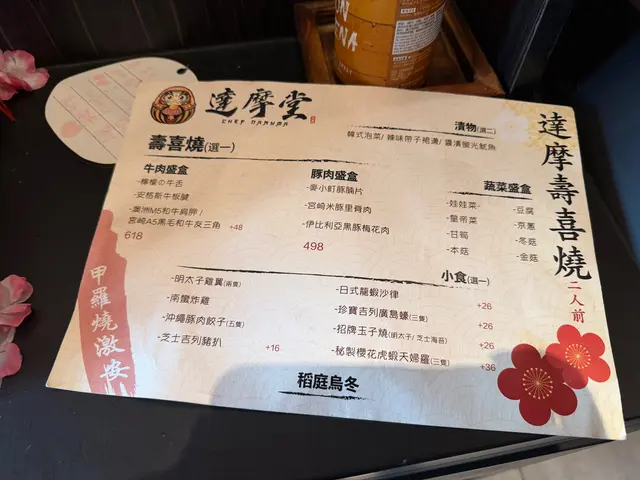 達摩堂
CHEF DARUMA
漬物(選二)
韓式泡菜/ 辣味帶子裙邊/ 醬漬螢光魷魚
壽喜燒(選一)
牛肉盛盒
-檸檬の牛舌
-安格斯牛板腱
-澳洲M5和牛肩胛/
宮崎A5黑毛和牛友三角 +48
618
豚肉盛盒
-麥小町豚腩片
-宮崎米豚里脊肉
-伊比利亞黑豚梅花肉
498
蔬菜盛盒
-娃娃菜
-皇帝菜
-甘筍
-本菇
-豆腐
-京蔥
-冬菇
-金菇
小食(選一)
-明太子雞翼(兩隻)
-南蠻炸雞
-沖繩豚肉餃子(五隻)
-芝士吉列豬扒 +16
-日式龍蝦沙律 +26
-珍寶吉列廣島蠔(三隻) +26
-招牌玉子燒(明太子/ 芝士海苔) +26
-秘製櫻花虎蝦天婦羅(三隻) +36
稻庭烏冬
達摩壽喜燒
二人前
甲羅燒激安!